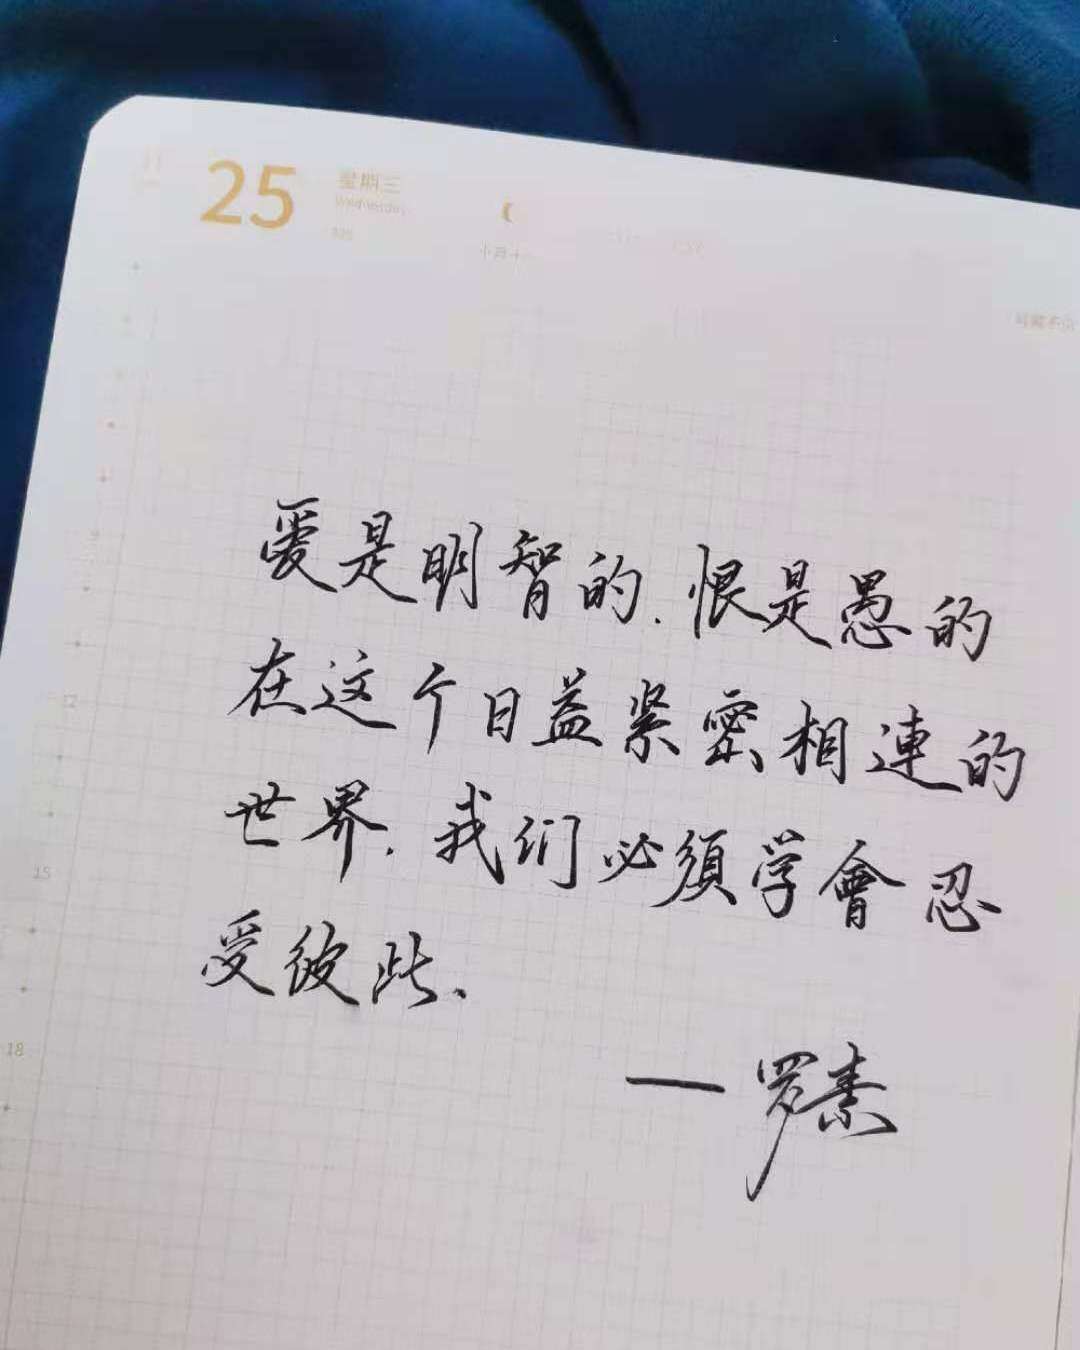 25
星期三
Wednesday
12
15
18
爱是明智的.恨是愚的
在这个日益紧密相連的
世界.我们必須学會忍
受彼此.
一罗素